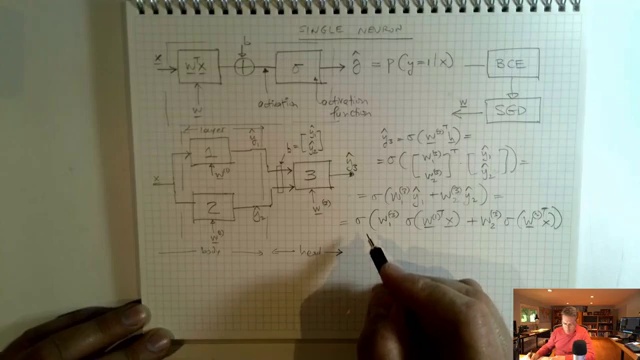 SINGLE NEURON
b
x → wᵀx → + → σ → ŷ = p(y=1|x) — BCE
w
activation
activation function
w SGD
layer
ŷ₁
b = [ŷ₁ ŷ₂]
1
w⁽¹⁾
x
3
ŷ₃
w⁽³⁾
2
ŷ₂
head
ŷ₃ = σ(w⁽³⁾ᵀ h) =
= σ([w₁⁽³⁾ w₂⁽³⁾]ᵀ [ŷ₁ ŷ₂]) =
= σ(w₁⁽³⁾ ŷ₁ + w₂⁽³⁾ ŷ₂) =
= σ(w₁⁽³⁾ σ(w⁽¹⁾ᵀ x) + w₂⁽³⁾ σ(w⁽²⁾ᵀ x))